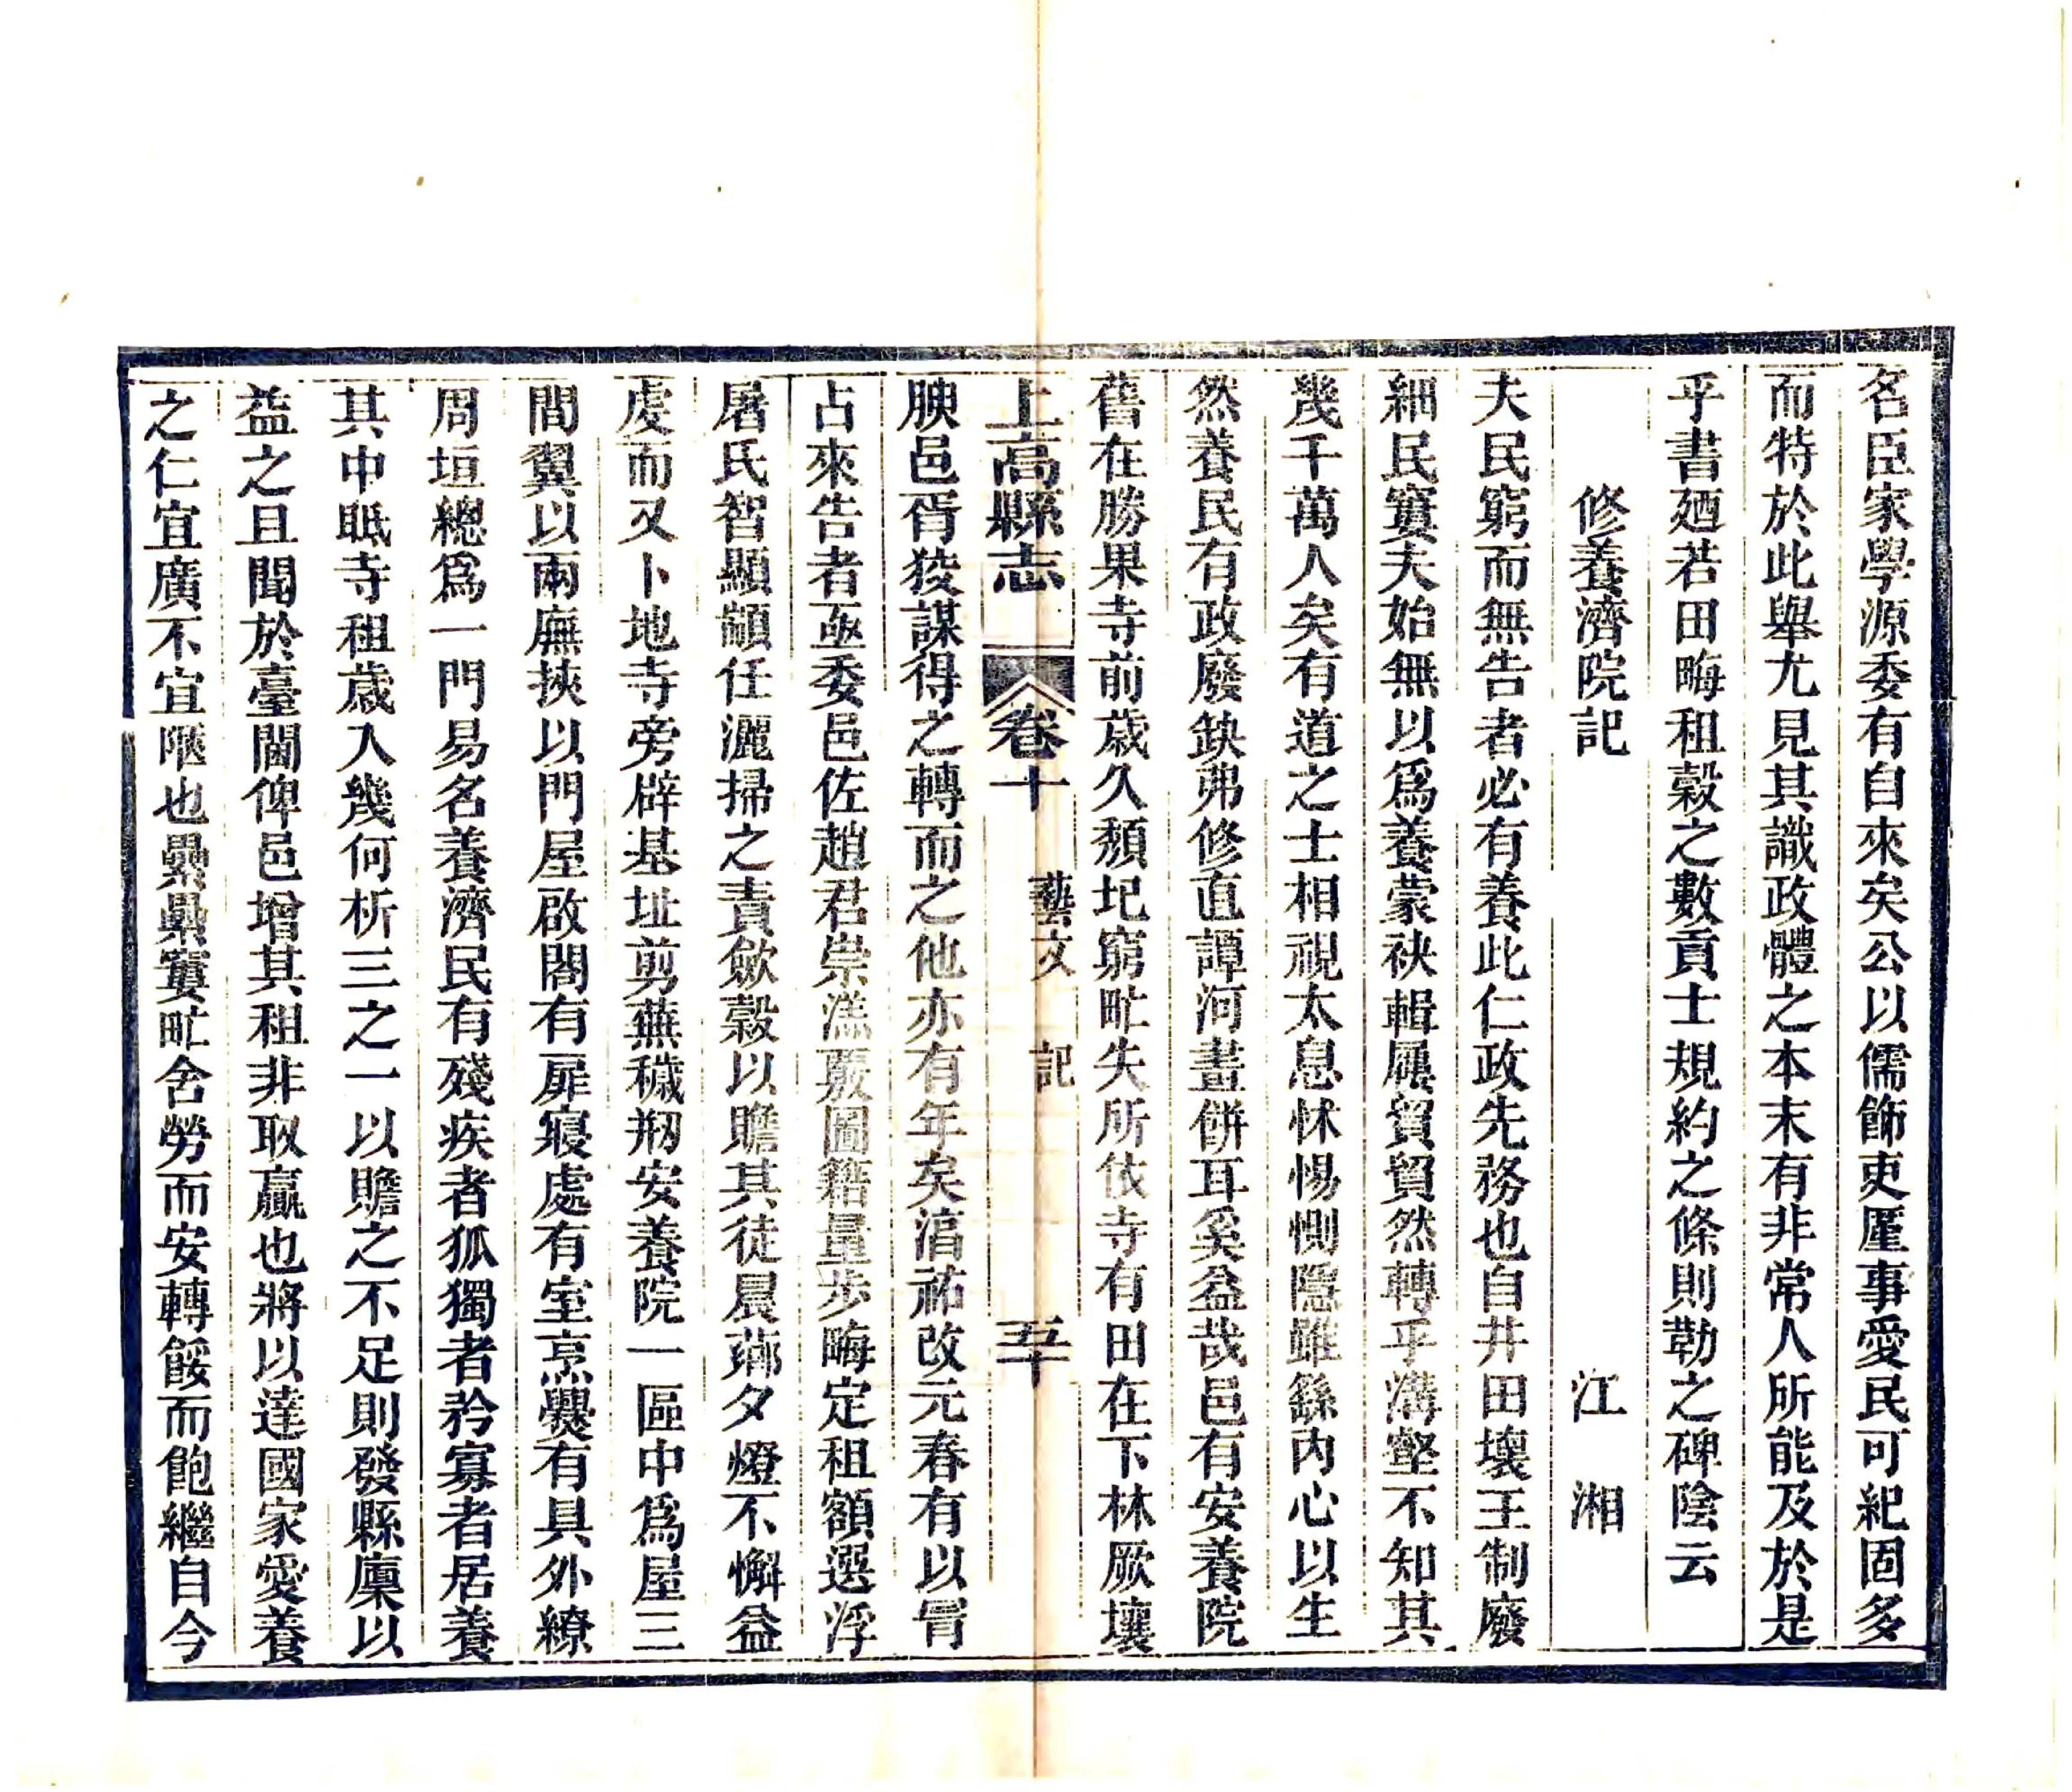 名臣家學源委有自來矣公以儒飾吏厪事愛民可紀固多
而特於此舉尤見其識政體之本末有非常人所能及於是
乎書廼若田畮租穀之數貢士規約之條則勒之碑陰云
修養濟院記 江湘
夫民窮而無告者必有養此仁政先務也自井田壞王制廢
細民窶夫始無以爲養蒙袂輯屨貿貿然轉乎溝壑不知其
幾千萬人矣有道之士相視太息怵惕惻隱雖繇內心以生
然養民有政廢缺弗修直譚河畫餅耳奚益哉邑有安養院
舊在勝果寺前歲久頹圮窮甿失所依寺有田在下林厥壤
上高縣志 卷十 藝文 記 五十
腴邑胥狡謀得之轉而之他亦有年矣淯祐改元春有以冐
占來告者亟委邑佐趙君崇潹覈圖籍量步畮定租額選浮
屠氏智顯顓任灑掃之責歛穀以贍其徒晨薌夕燈不懈益
虔而又卜地寺旁辟基址剪蕪穢剙安養院一區中爲屋三
間翼以兩廡挾以門屋啟閤有扉寢處有室烹爨有具外繚
周垣總爲一門易名養濟民有殘疾者狐獨者矜寡者居養
其中眂寺租歲入幾何析三之一以贍之不足則發縣廩以
益之且聞於臺閫俾邑增其租非取贏也將以達國家愛養
之仁宜廣不宜陿也纍纍窶甿舍勞而安轉餒而飽繼自今